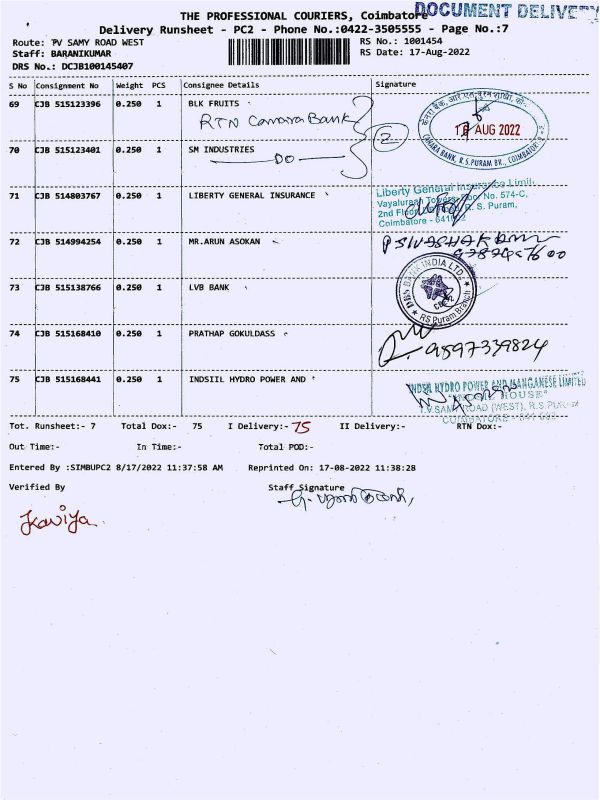 DOCUMENT DELIVERY
THE PROFESSIONAL COURIERS, Coimbatore
Delivery Runsheet - PC2 - Phone No.:0422-3505555 - Page No.:7
Route: PV SAMY ROAD WEST
RS No.: 1001454
Staff: BARANIKUMAR
RS Date: 17-Aug-2022
DRS No.: DCJB100145407
S No Consignment No Weight PCS Consignee Details Signature
69 CJB 515123396 0.250 1 BLK FRUITS
RTN Canara Bank
2
18 AUG 2022
CANARA BANK, R.S.PURAM BR., COIMBATORE
70 CJB 515123401 0.250 1 SM INDUSTRIES
DO
71 CJB 514803767 0.250 1 LIBERTY GENERAL INSURANCE
Liberty General Insurance Limit
Vayaluraan Towers, Door No. 574-C,
2nd Floor, R. S. Puram,
Coimbatore - 641002
72 CJB 514994254 0.250 1 MR.ARUN ASOKAN
73 CJB 515138766 0.250 1 LVB BANK
DBS BANK INDIA LTD.
CBE-2
RS Puram Branch
74 CJB 515168410 0.250 1 PRATHAP GOKULDASS
9597339824
75 CJB 515168441 0.250 1 INDSIIL HYDRO POWER AND
INDSIL HYDRO POWER AND MANGANESE LIMITED
HOUSE"
T.V.SAMY ROAD (WEST), R.S.PURAM
COIMBATORE - 641 002
Tot. Runsheet:- 7 Total Dox:- 75 I Delivery:- 75 II Delivery:- RTN Dox:-
Out Time:- In Time:- Total POD:-
Entered By :SIMBUPC2 8/17/2022 11:37:58 AM Reprinted On: 17-08-2022 11:38:28
Verified By Staff Signature
Kaviya